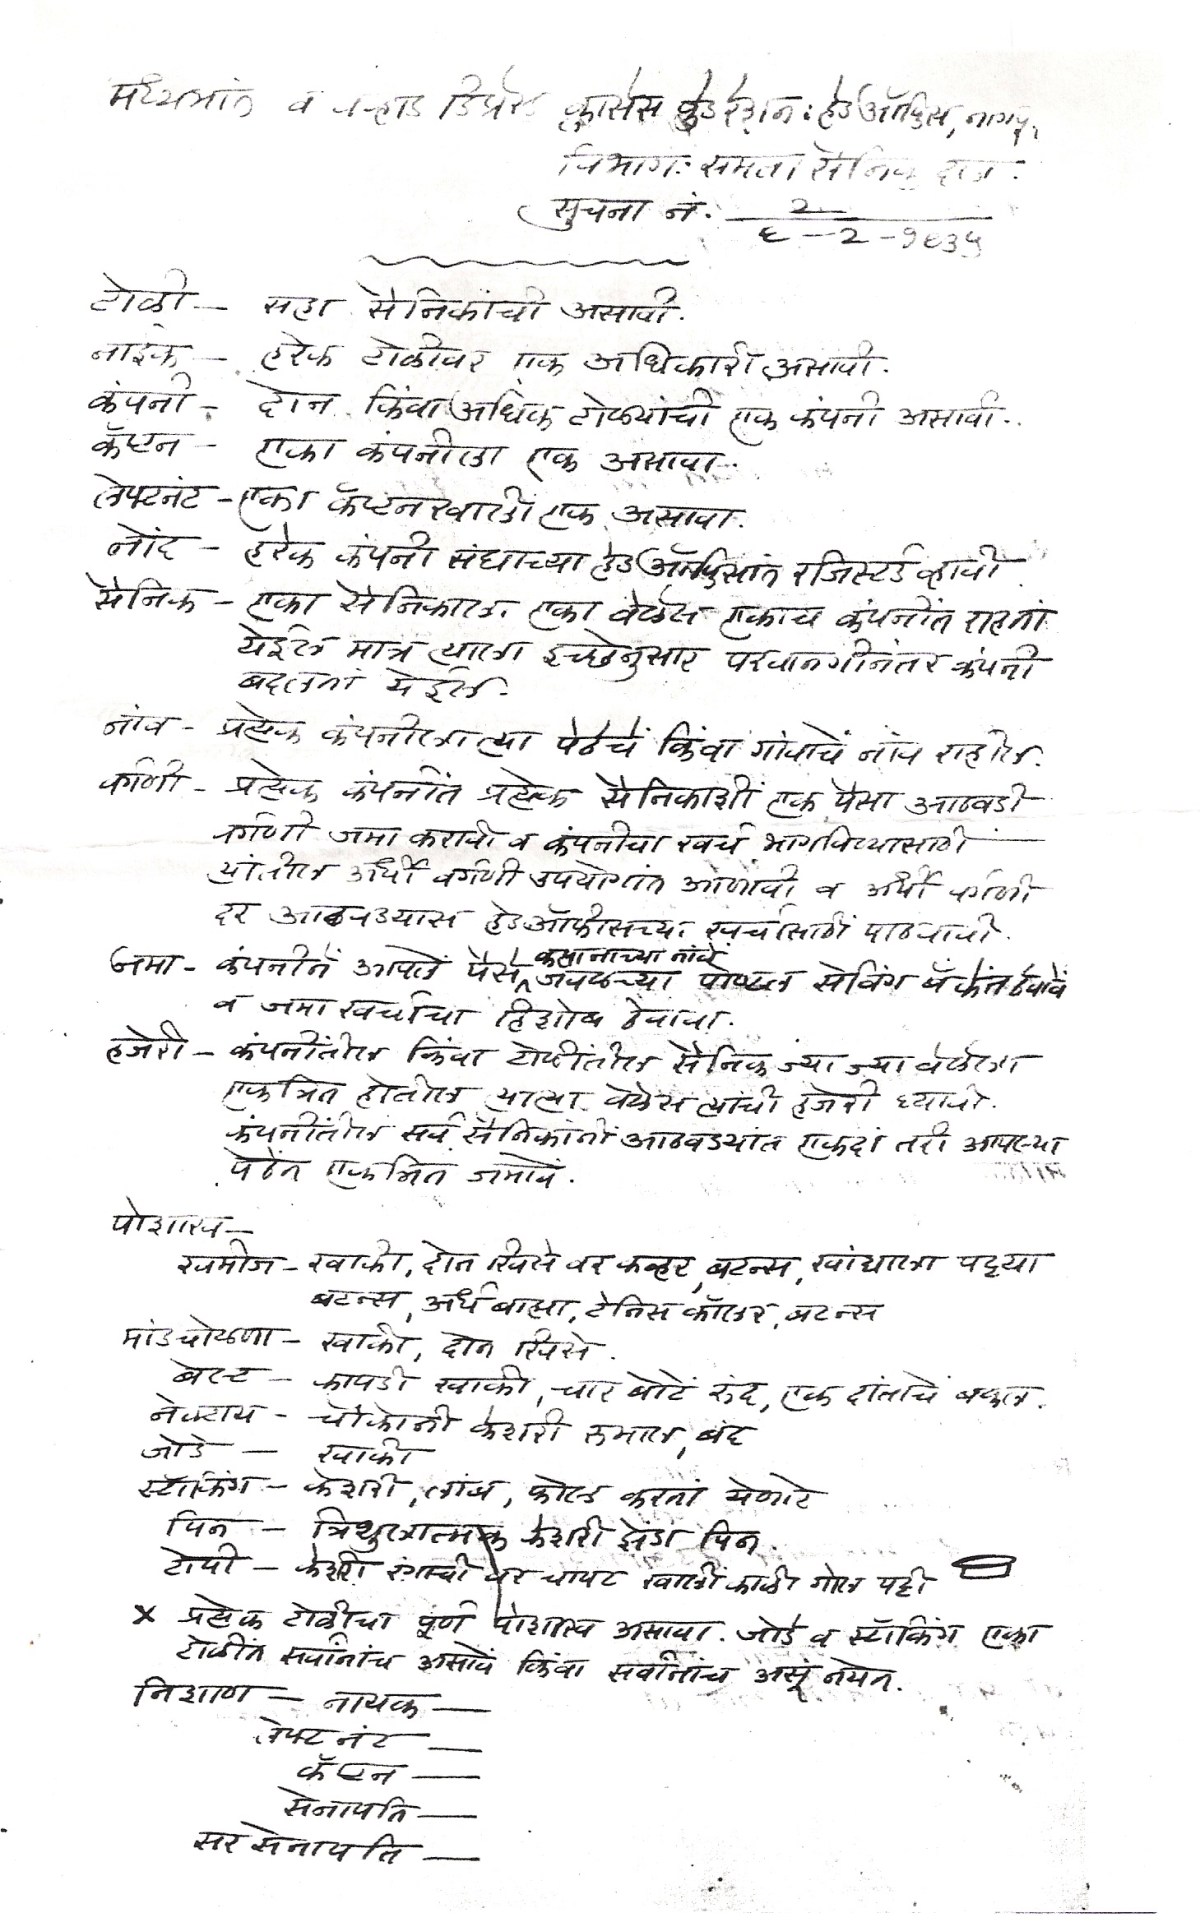 मध्यप्रांत व वऱ्हाड डिप्रेस्ड क्लासेस फेडरेशन : हेड ऑफिस, नागपूर.
विभाग: समता सैनिक दल.
सुचना नं. २
६-२-१९३५
टोळी - सहा सैनिकांची असावी.
नाईक - हरेक टोळीवर एक अधिकारी असावा.
कंपनी - दोन किंवा अधिक टोळ्यांची एक कंपनी असावी.
कॅप्टन - एका कंपनीला एक असावा.
लेफ्टनंट - एका कॅप्टनखाली एक असावा.
नोंद - हरेक कंपनी संघाच्या हेड ऑफिसांत रजिस्टर्ड व्हावी
सैनिक - एका सैनिकाला एका वेळेस एकाच कंपनींत राहतां
येईल मात्र त्याला इच्छेनुसार परवानगीनंतर कंपनी
बदलतां येईल.
नांव - प्रत्येक कंपनीला त्या पेठेचें किंवा गांवाचें नांव राहील.
वर्गणी - प्रत्येक कंपनींत प्रत्येक सैनिकाशीं एक पैसा आठवडी
वर्गणी जमा करावी व कंपनीचा खर्च भागविण्यासाठी
यांतील अर्धी वर्गणी उपयोगांत आणावी व अर्धी वर्गणी
दर आठवड्यास हेड ऑफीसच्या खर्चासाठीं पाठवावी.
जमा - कंपनीनें आपले पैसे कप्तानाच्या नांवें जवळच्या पोष्टल सेविंग बँकेंत ठेवावें
व जमाखर्चाचा हिशोब ठेवावा.
हजेरी - कंपनींतील किंवा टोळींतील सैनिक ज्या ज्या वेळेला
एकत्रित होतील त्या त्या वेळेस त्यांची हजेरी घ्यावी.
कंपनींतील सर्व सैनिकांनीं आठवड्यांत एकदां तरी आपल्या
पेठेंत एकत्रित जमावें.
पोशाख -
खमीज - खाकी, दोन खिसे वर कव्हर, बटन्स, खांद्याला पट्ट्या
बटन्स, अर्ध बाह्या, टेनिस कॉलर, बटन्स
मांडचोळणा - खाकी, दोन खिसे.
बेल्ट - कापडी खाकी, चार बोटें रुंद, एक दांताचें बक्कल.
नेकटाय - चौकोनी केशरी रुमाल, बंद
जोडे - खाकी
स्टॉकिंग - केशरी, लांब, फोल्ड करतां येणारे
पिन - त्रिशुलात्मक केशरी झेंडा पिन.
टोपी - केशरी रंगाची वर चापट खालीं काळी गोल पट्टी
x प्रत्येक टोळीचा पूर्ण पोशाख असावा. जोडे व स्टॉकिंग एका
टोळींत सर्वांनांच असावें किंवा सर्वांनांच असूं नयेत.
निशाण - नायक -
लेफ्टनंट -
कॅप्टन -
सेनापति -
सर सेनापति -